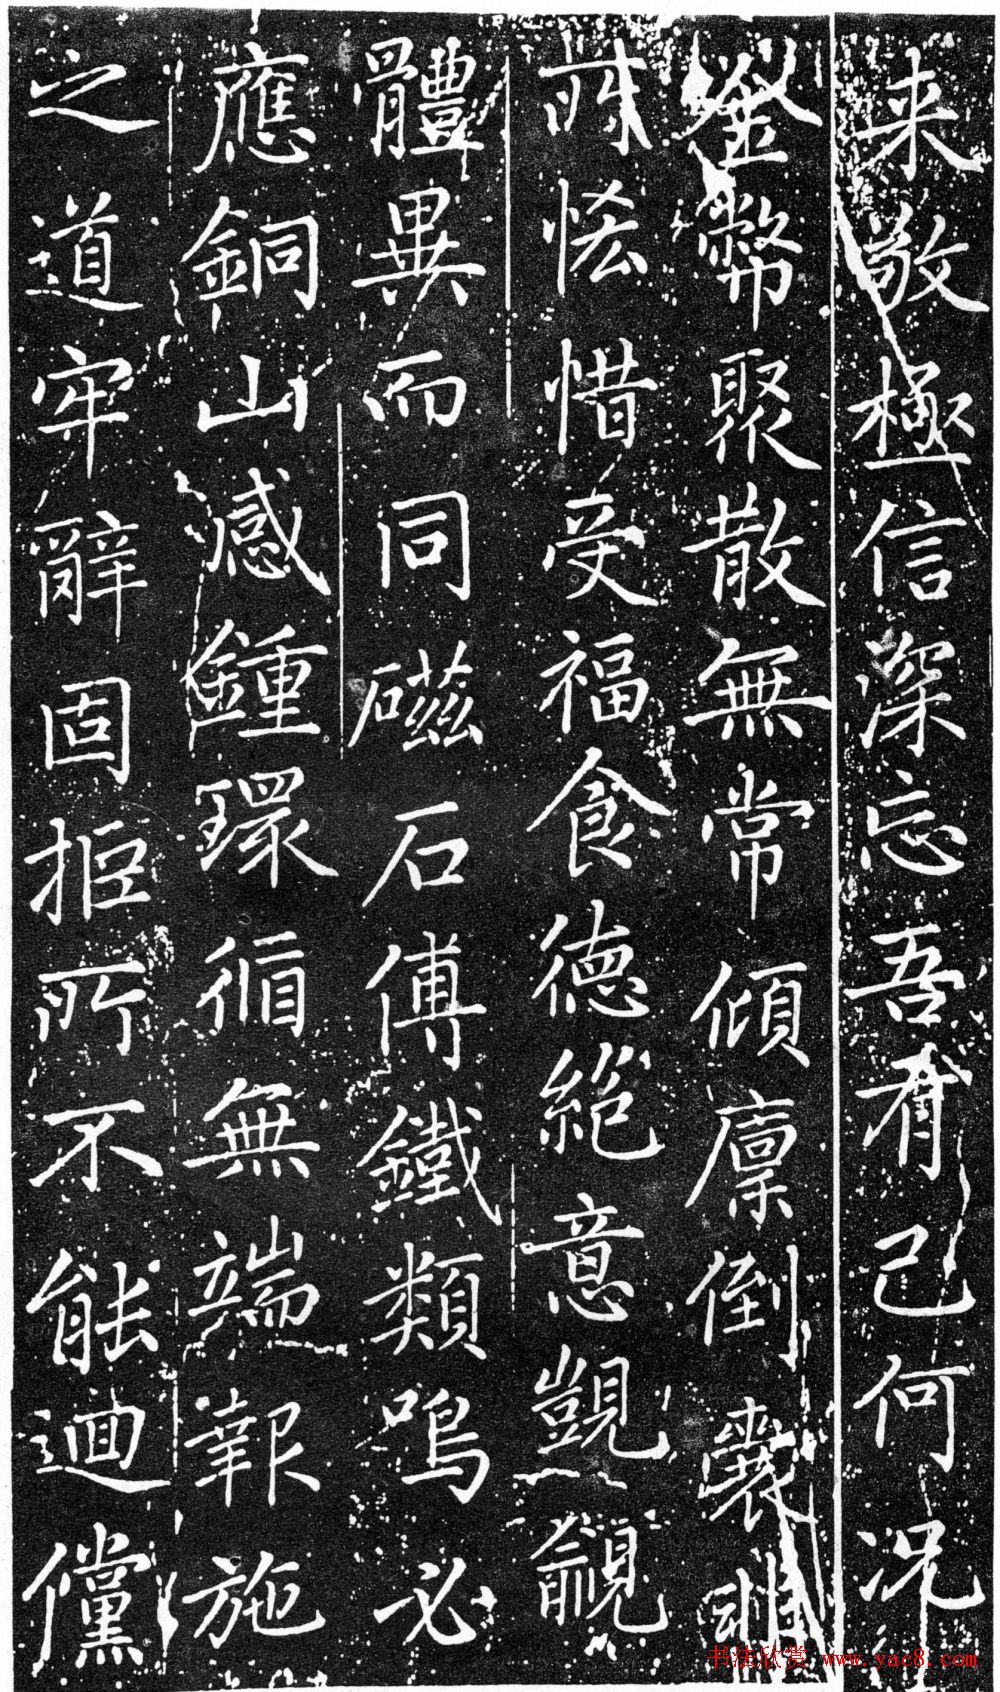 来敬極信深忘吾有己何况
金幣聚散無常傾廩倒囊非
所悋惜受福食德絕意覬覦
體異而同磁石傅鐵類鳴必
應銅山感鐘環循無端報施
之道牢辭固拒所不能迴儻
书法欣赏 www.yac8.com